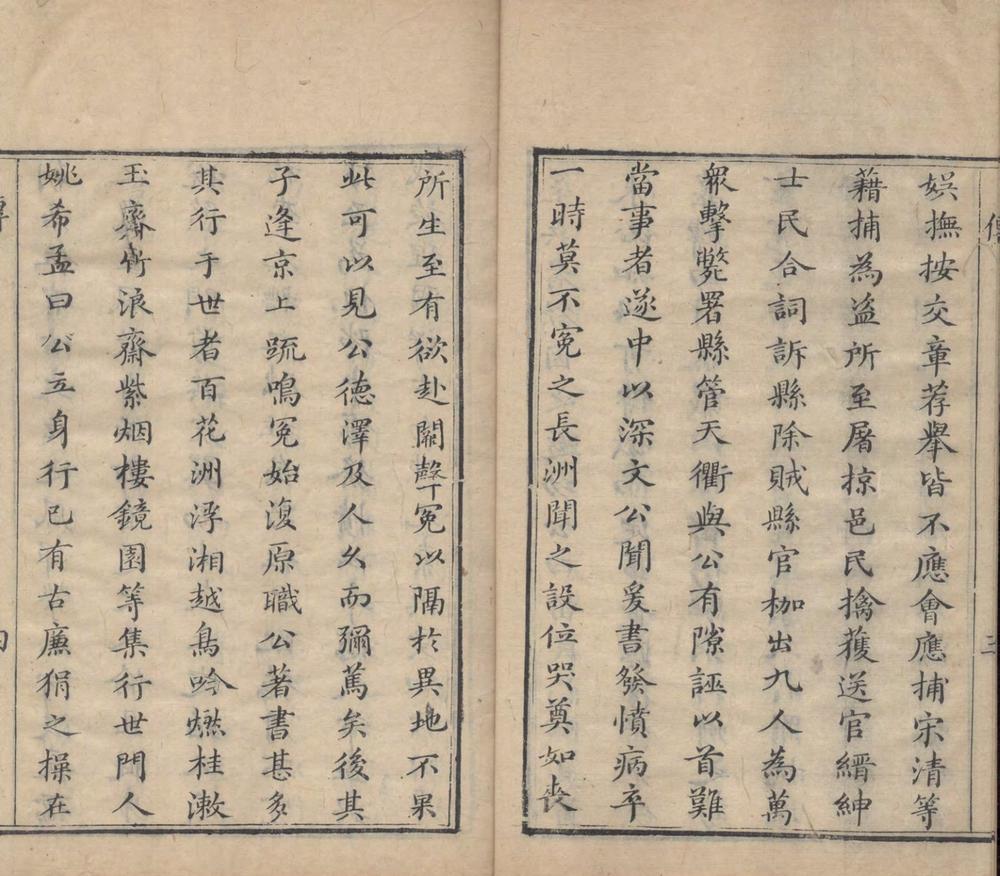 傳
三
娛撫按交章荐舉皆不應會應捕宋清等
藉捕為盜所至屠掠邑民擒獲送官縉紳
士民合詞訴縣除賊縣官枷出九人為萬
衆擊斃署縣管天衢與公有隙誣以首難
當事者遂中以深文公聞爰書發憤病卒
一時莫不冤之長洲聞之設位哭奠如喪
所生至有欲赴闕聲冤以隔於異地不果
此可以見公德澤及人久而彌篤矣後其
子逢京上疏鳴冤始復原職公著書甚多
其行于世者百花洲浮湘越鳥吟燃桂漱
玉齋竹浪齋紫烟樓鏡園等集行世門人
姚希孟曰公立身行己有古廉狷之操在